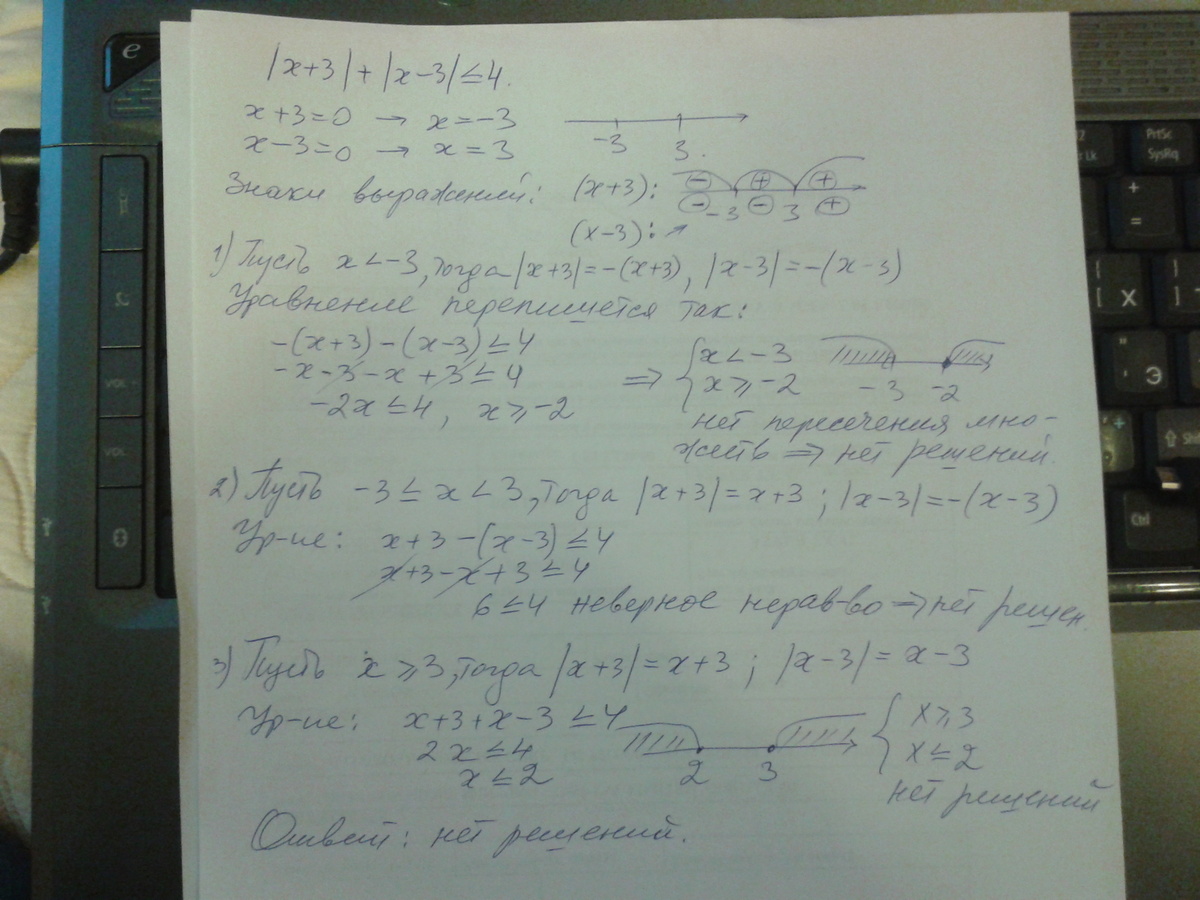 |x+3| + |x-3| ≤ 4.
x+3=0 → x=-3
x-3=0 → x=3
-3 3.
Знаки выражений: (x+3): - + +
(x-3): ↗ - -3 - 3 +
1) Пусть x<-3, тогда |x+3|=-(x+3), |x-3|=-(x-3)
Уравнение перепишется так:
-(x+3)-(x-3)≤4
-x-3-x+3≤4
-2x≤4, x≥-2
⇒ { x<-3
x≥-2
-3 -2
нет пересечения мно-
жеств ⇒ нет решений.
2) Пусть -3≤x<3, тогда |x+3|=x+3; |x-3|=-(x-3)
Ур-ие: x+3-(x-3)≤4
x+3-x+3≤4
6≤4 неверное нерав-во ⇒ нет решен.
3) Пусть x≥3, тогда |x+3|=x+3; |x-3|=x-3
Ур-ие: x+3+x-3≤4
2x≤4
x≤2
2 3
{ x≥3
x≤2
нет решений
Ответ: нет решений.
e
PrtSc
SysRq
Lk
+
=
{
[
Х
}
]
"
'
Э
Shift
Ctrl
VOL -
VOL